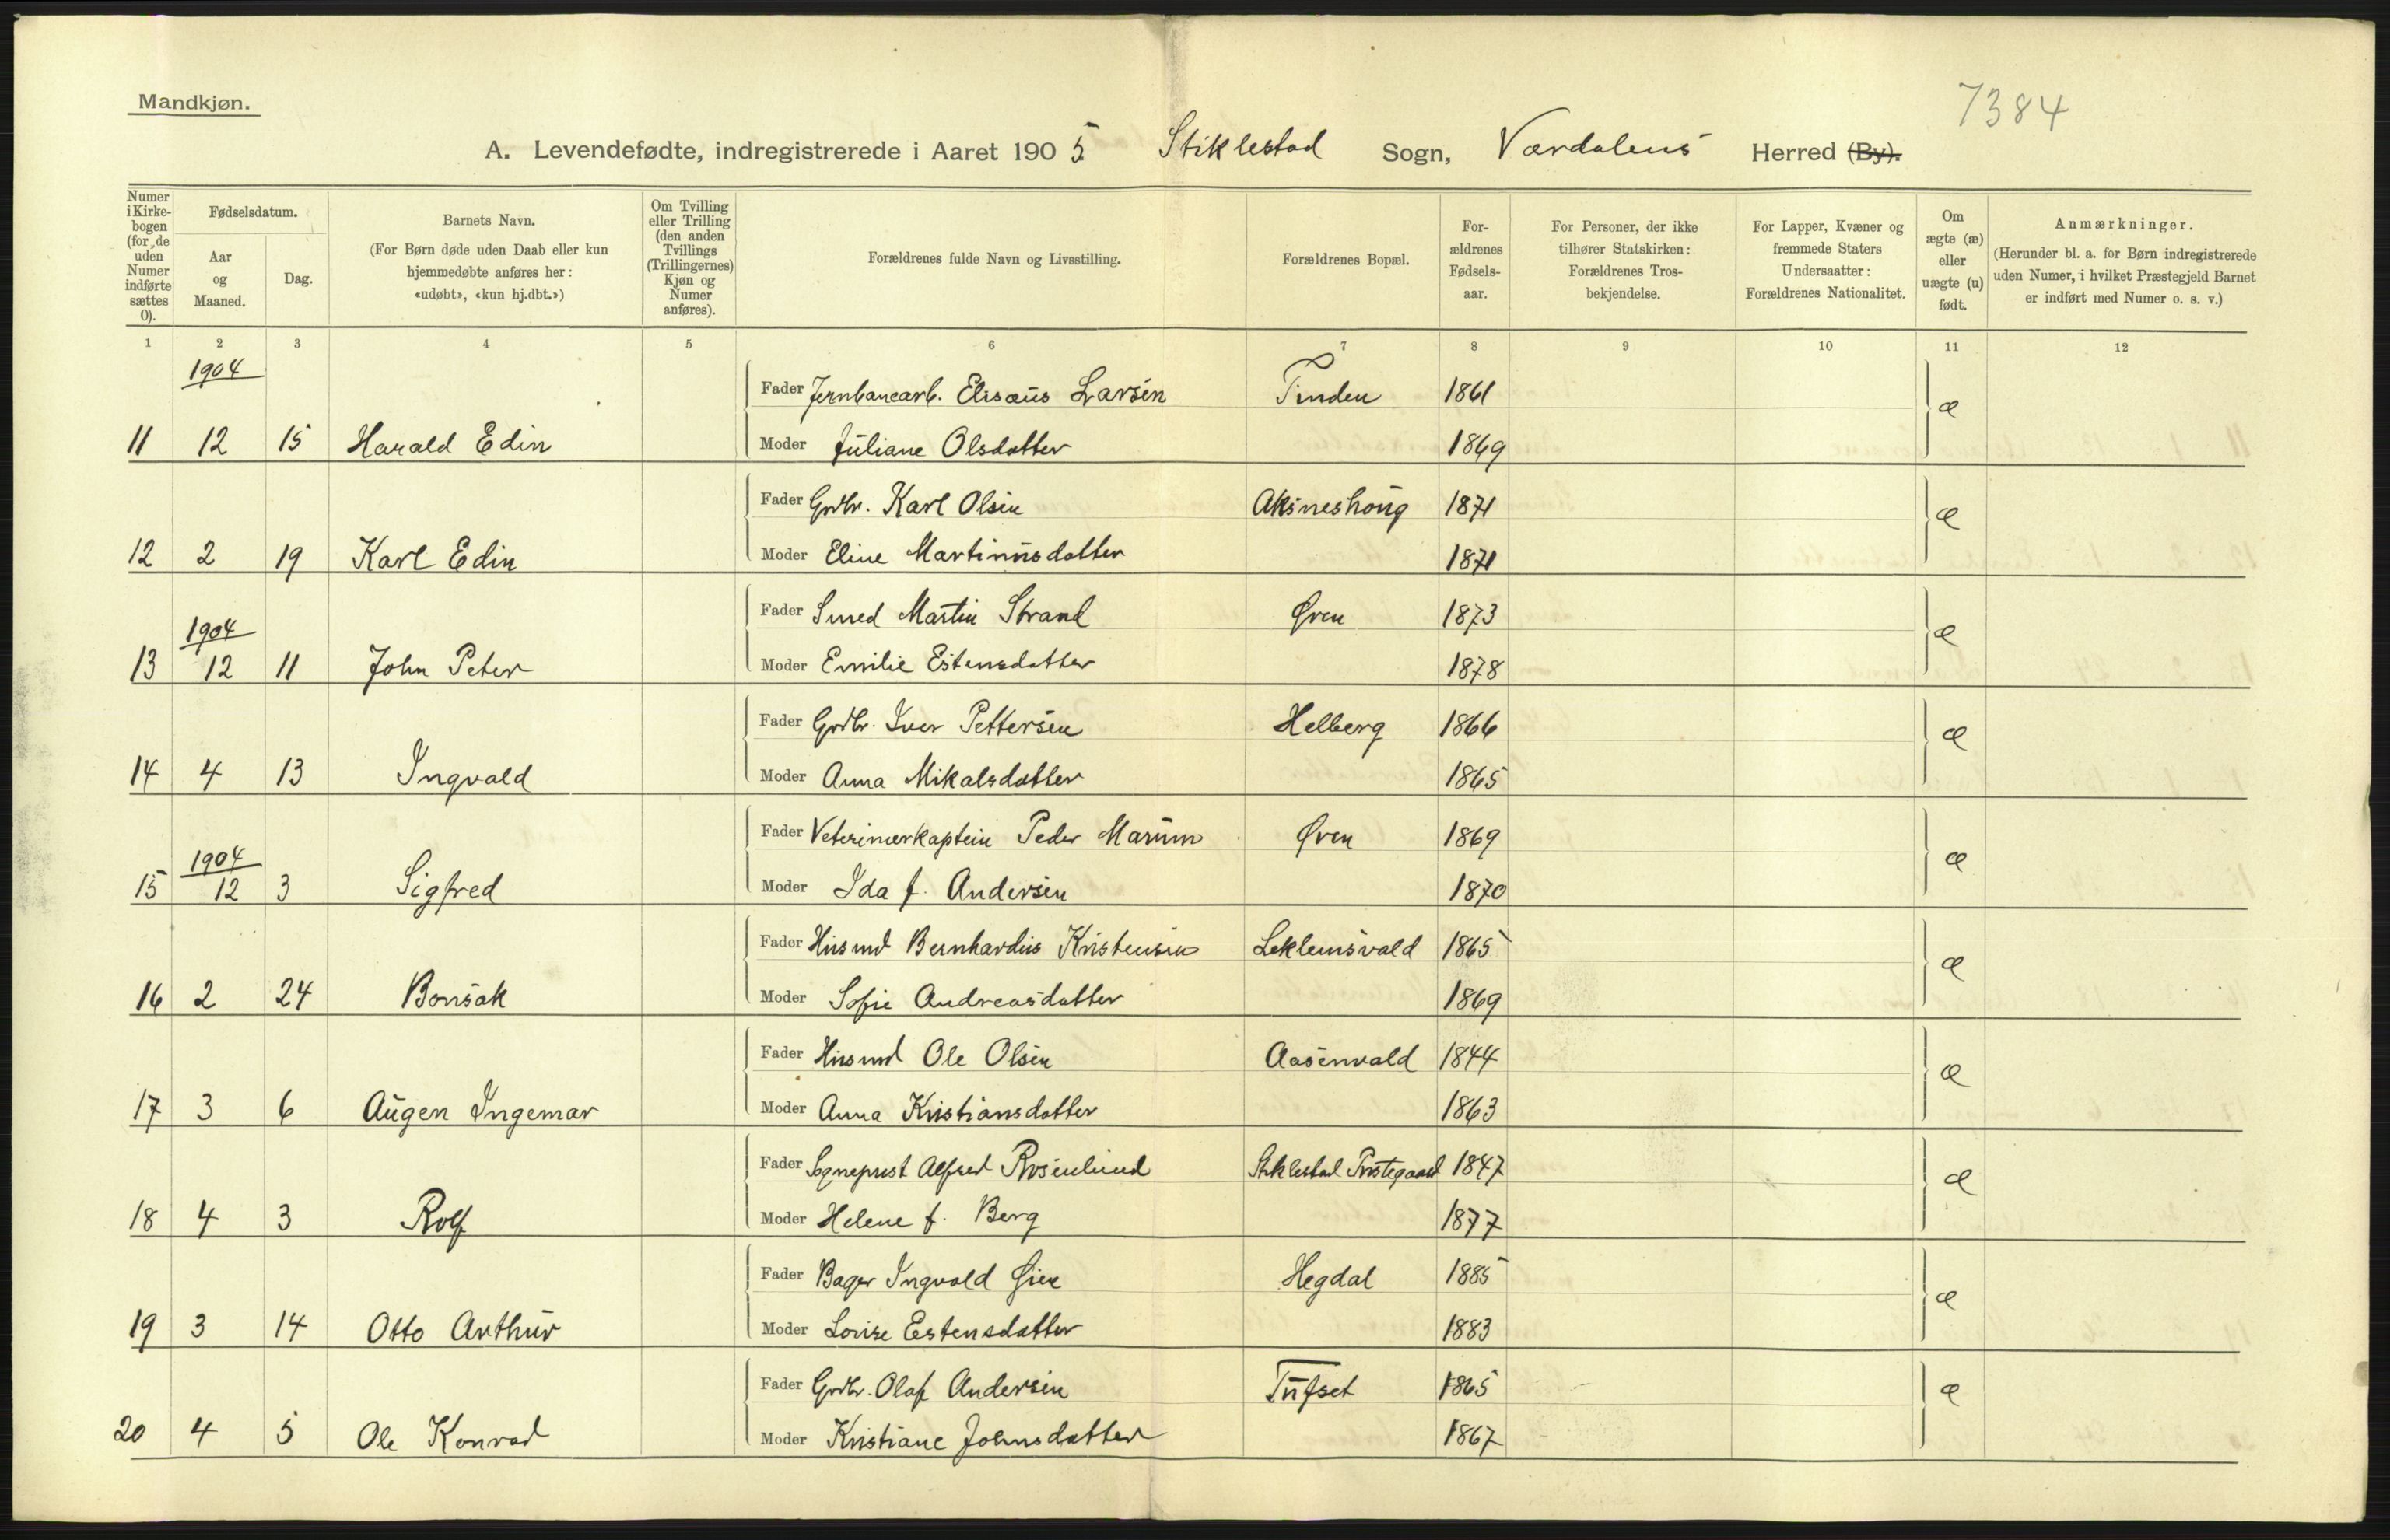 7384
Mandkjøn.
A. Levendefødte, indregistrerede i Aaret 1905 Stiklestad Sogn, Værdalens Herred (By).
Numer i Kirke-bogen (for de uden Numer indførte sættes 0).
Fødselsdatum.
Aar og Maaned.
Dag.
Barnets Navn.
(For Børn døde uden Daab eller kun hjemmedøbte anføres her: «udøbt», «kun hj.dbt.»)
Om Tvilling eller Trilling (den anden Tvillings (Trillingernes) Kjøn og Numer anføres).
Forældrenes fulde Navn og Livsstilling.
Forældrenes Bopæl.
For-ældrenes Fødsels-aar.
For Personer, der ikke tilhører Statskirken: Forældrenes Tros-bekjendelse.
For Lapper, Kvæner og fremmede Staters Undersaatter: Forældrenes Nationalitet.
Om ægte (æ) eller uægte (u) født.
Anmærkninger.
(Herunder bl. a. for Børn indregistrerede uden Numer, i hvilket Præstegjeld Barnet er indført med Numer o. s. v.)
1 2 3 4 5 6 7 8 9 10 11 12
1904
Fader Jernbanearb. Elisæus Larsen Tinden 1861 æ
11 12 15 Harald Edin Moder Juliane Olsdatter 1869
Fader Grdbr. Karl Olsen Aksneshoug 1871 æ
12 2 19 Karl Edin Moder Eline Martinusdatter 1871
Fader Smed Martin Strand Øren 1873 æ
1904
13 12 11 John Peter Moder Emilie Estensdatter 1878
Fader Grdbr. Iver Pettersen Helberg 1866 æ
14 4 13 Ingvald Moder Anna Mikalsdatter 1865
Fader Veterinærkaptein Peder Marum Øren 1869 æ
1904
15 12 3 Sigfred Moder Ida f. Andersen 1870
Fader Husmd Bernhardus Kristensen Leklemsvald 1865 æ
16 2 24 Bonsak Moder Sofie Andreasdatter 1869
Fader Husmd Ole Olsen Aasenvald 1844 æ
17 3 6 Augen Ingemar Moder Anna Kristiansdatter 1863
Fader Sogneprest Alfred Rosenlund Stiklestad Prestegaard 1847 æ
18 4 3 Rolf Moder Helene f. Berg 1877
Fader Bager Ingvald Øien Hegdal 1885 æ
19 3 14 Otto Arthur Moder Lovise Estensdatter 1883
Fader Grdbr. Olaf Andersen Tufset 1865 æ
20 4 5 Ole Konrad Moder Kristiane Johnsdatter 1867